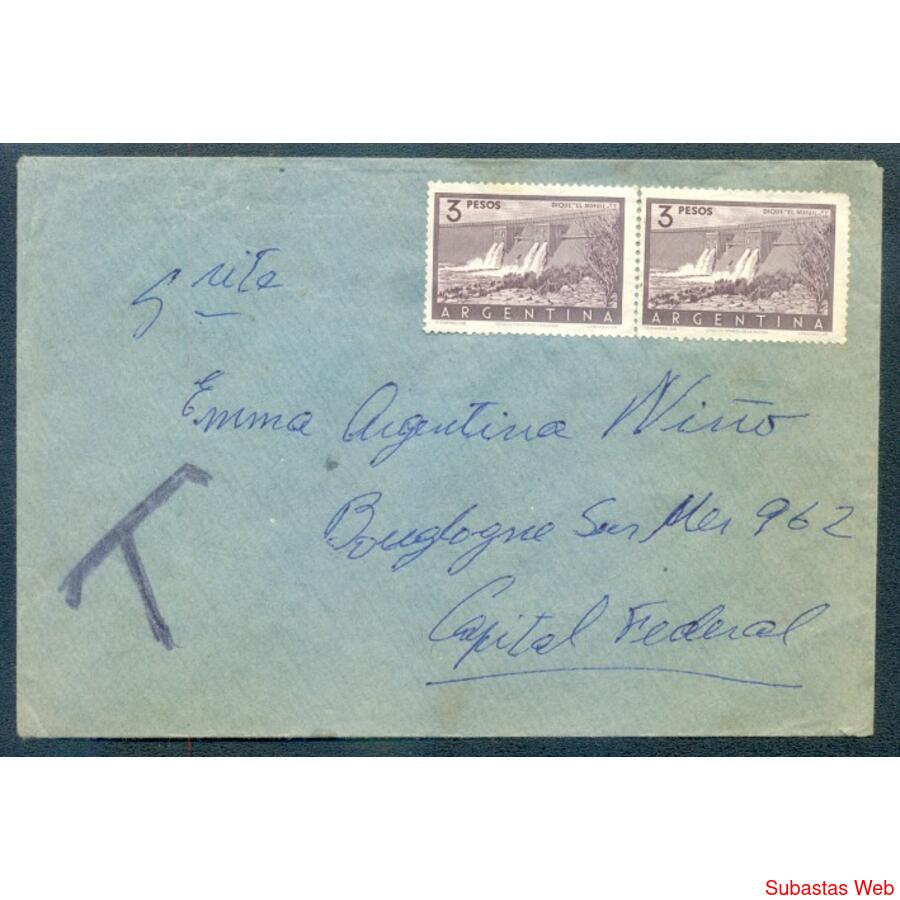 3 PESOS DIQUE "EL NIHUIL"
ARGENTINA
3 PESOS DIQUE "EL NIHUIL"
ARGENTINA
Srita
Emma Argentina Niño
Bouglogne Sur Mer 962
Capital Federal
T
Subastas Web